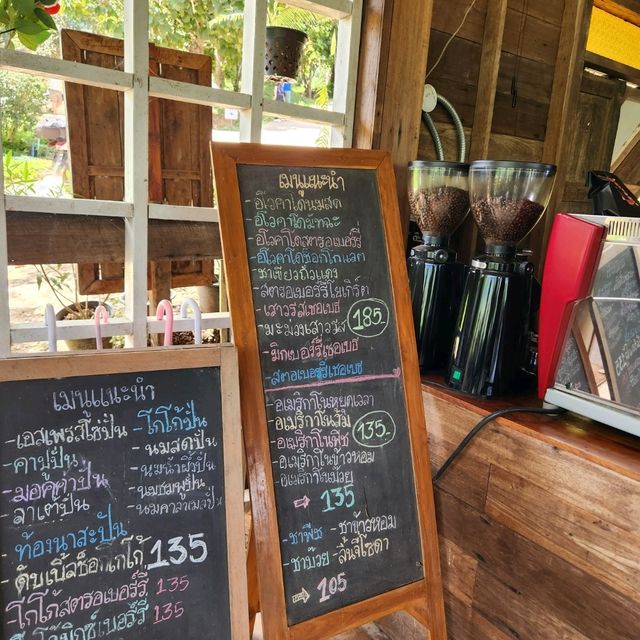 เมนูแนะนำ
- อโวคาโดนมสด
- อโวคาโดมัทฉะ
- อโวคาโดสตรอเบอร์รี่
- อโวคาโดช็อกโกแลต
- ชาเขียวถั่วแดง
- สตรอเบอร์รี่โยเกิร์ต
- เสาวรสเชอเบธ
- มะม่วงเสาวรส
185
- มิกเบอร์รี่เชอเบธ
- สตอเบอรี่เชอเบธ
- อเมริกาโน่หยุดเวลา
- อเมริกาโน่ส้ม
- อเมริกาโน่พีช
135.-
- อเมริกาโน่ข้าวหอม
- อเมริกาโน่บ๊วย
135
- ชาพีช - ชาข้าวหอม
- ชาบ๊วย - ลิ้นจี่โซดา
105
เมนูแนะนำ
- เอสเพรสโซ่ปั่น
- คาปูปั่น
- มอคค่าปั่น
- ลาเต้ปั่น
- ท้องนาสะปั่น
- โกโก้ปั่น
- นมสดปั่น
- นมน้ำผึ้งปั่น
- นมชมพูปั่น
- นมคาราเมลปั่น
135
- ดับเบิ้ลช็อกโกโก้
- โกโก้สตรอเบอร์รี่ 135
135